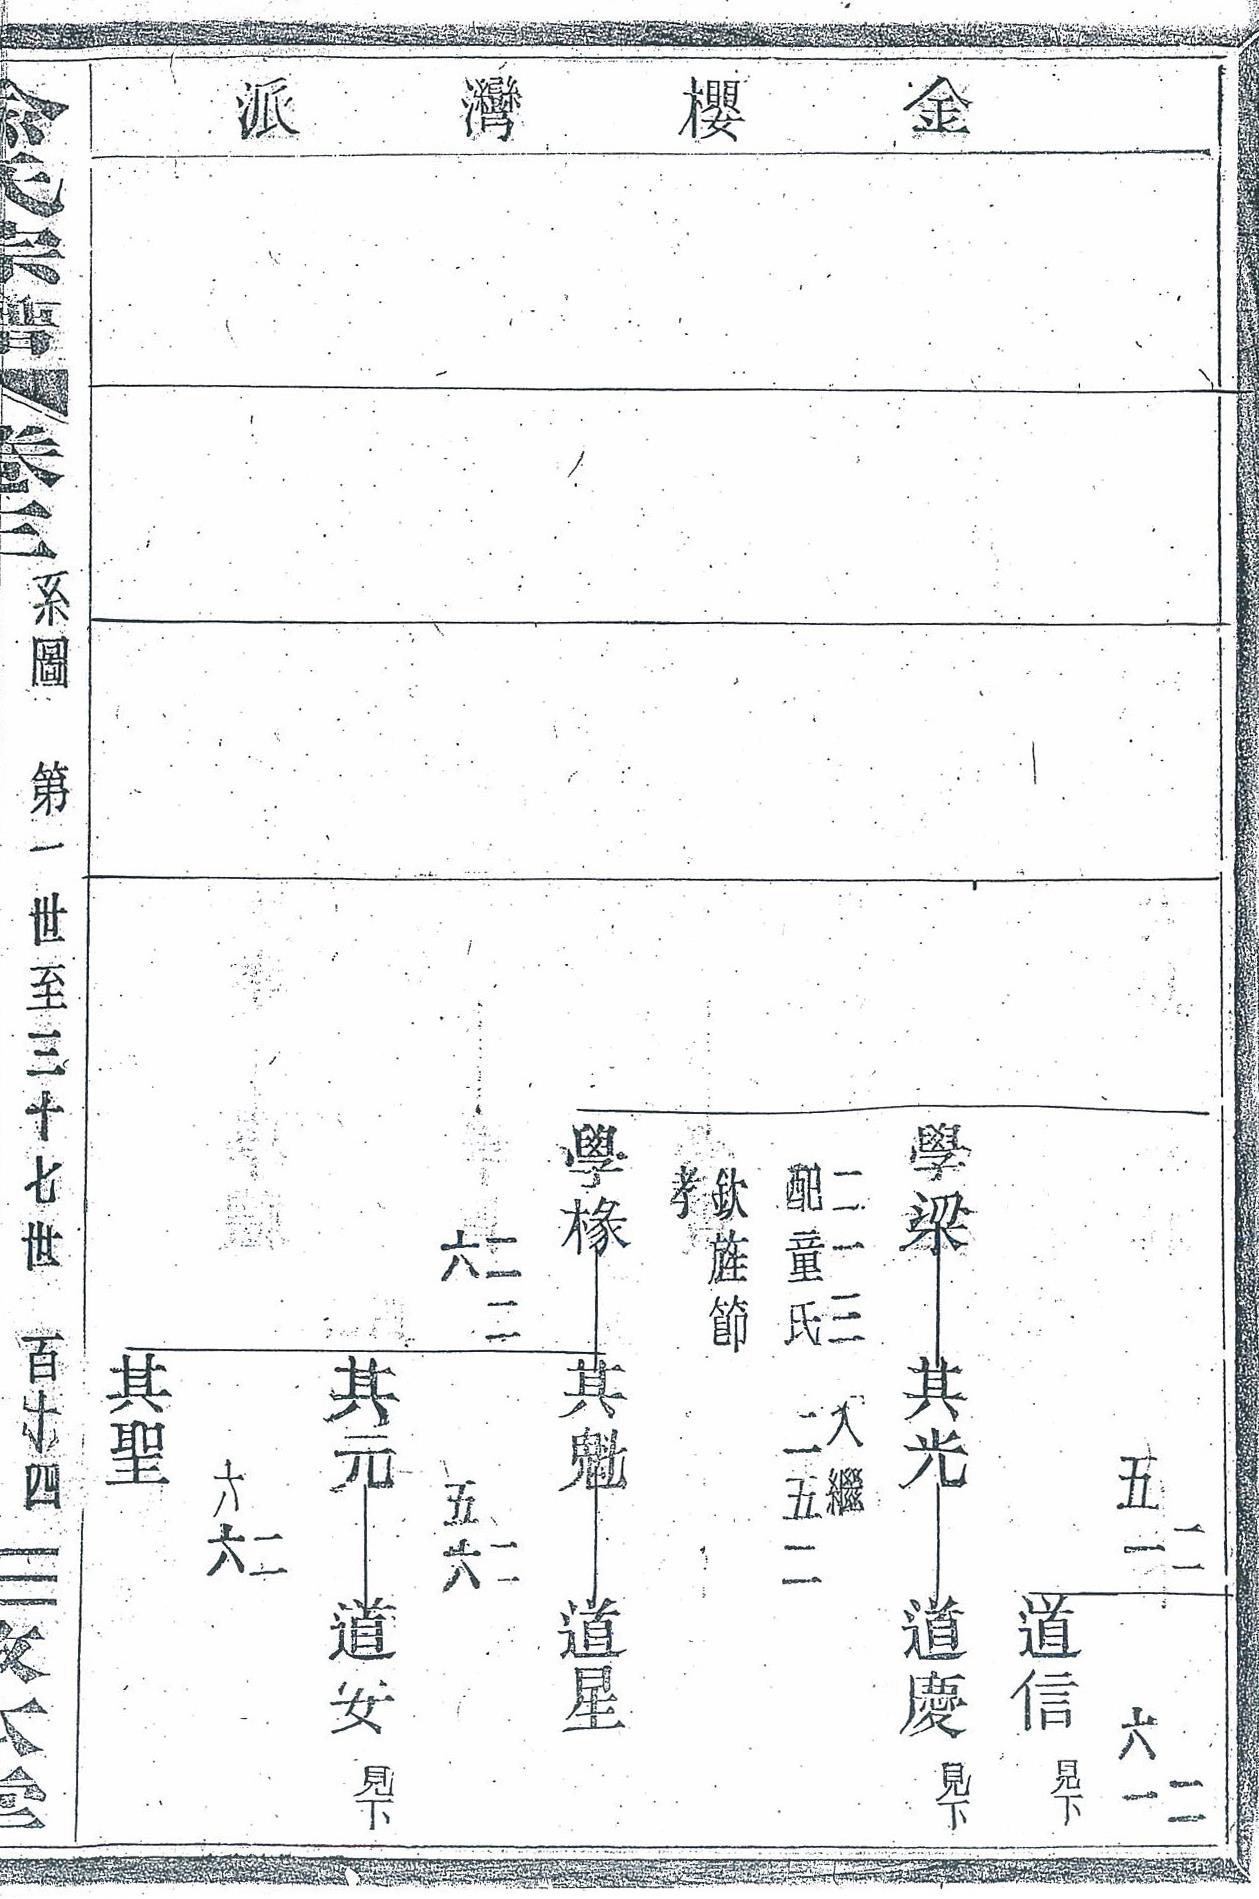 金櫻灣派
學梁
二一三
配童氏
欽旌節
孝
學椽
二二
六
二二
五一
其光
入繼
二五二
其魁
二
五六
其元
二二
六六
其聖
二二
六一
道信 見下
道慶 見下
道星
道安 見下
余氏宗譜 卷三 系圖 第一世至三十七世 百十四 三 敦本堂